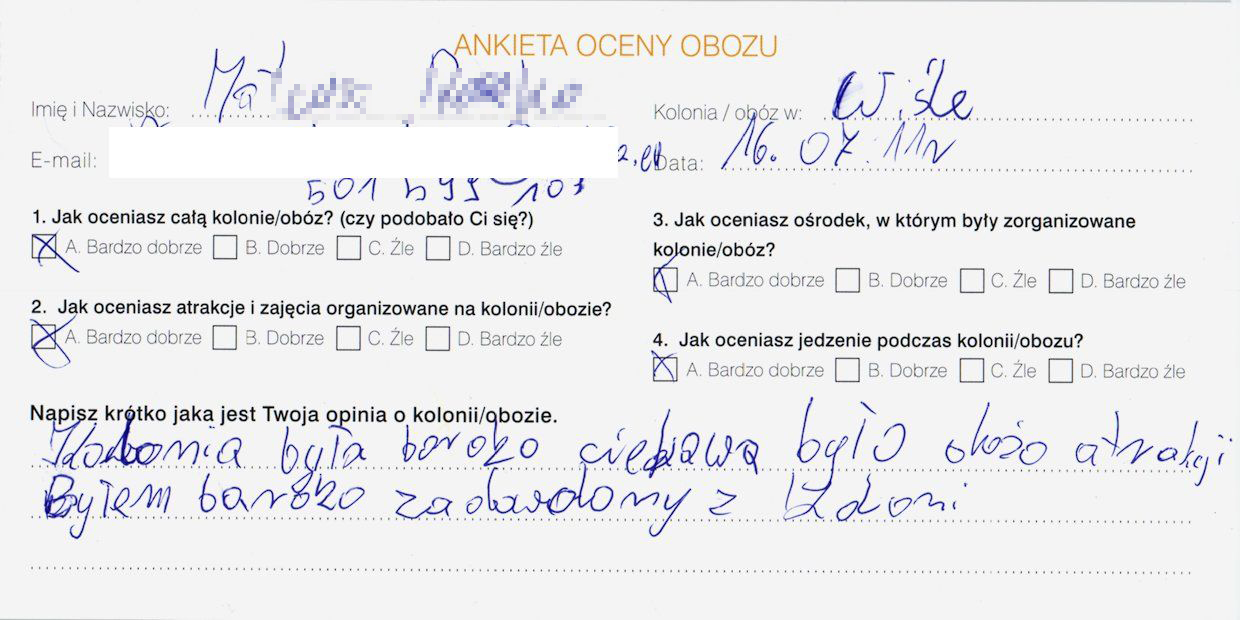 ANKIETA OCENY OBOZU
Imię i Nazwisko:
Kolonia / obóz w: Wiśle
E-mail:
Data: 16.07.11r
501
1. Jak oceniasz całą kolonie/obóz? (czy podobało Ci się?)
A. Bardzo dobrze B. Dobrze C. Źle D. Bardzo źle
2. Jak oceniasz atrakcje i zajęcia organizowane na kolonii/obozie?
A. Bardzo dobrze B. Dobrze C. Źle D. Bardzo źle
3. Jak oceniasz ośrodek, w którym były zorganizowane
kolonie/obóz?
A. Bardzo dobrze B. Dobrze C. Źle D. Bardzo źle
4. Jak oceniasz jedzenie podczas kolonii/obozu?
A. Bardzo dobrze B. Dobrze C. Źle D. Bardzo źle
Napisz krótko jaka jest Twoja opinia o kolonii/obozie.
była bardzo ciekawa było dużo atrakcji
Byłem bardzo zadowolony z